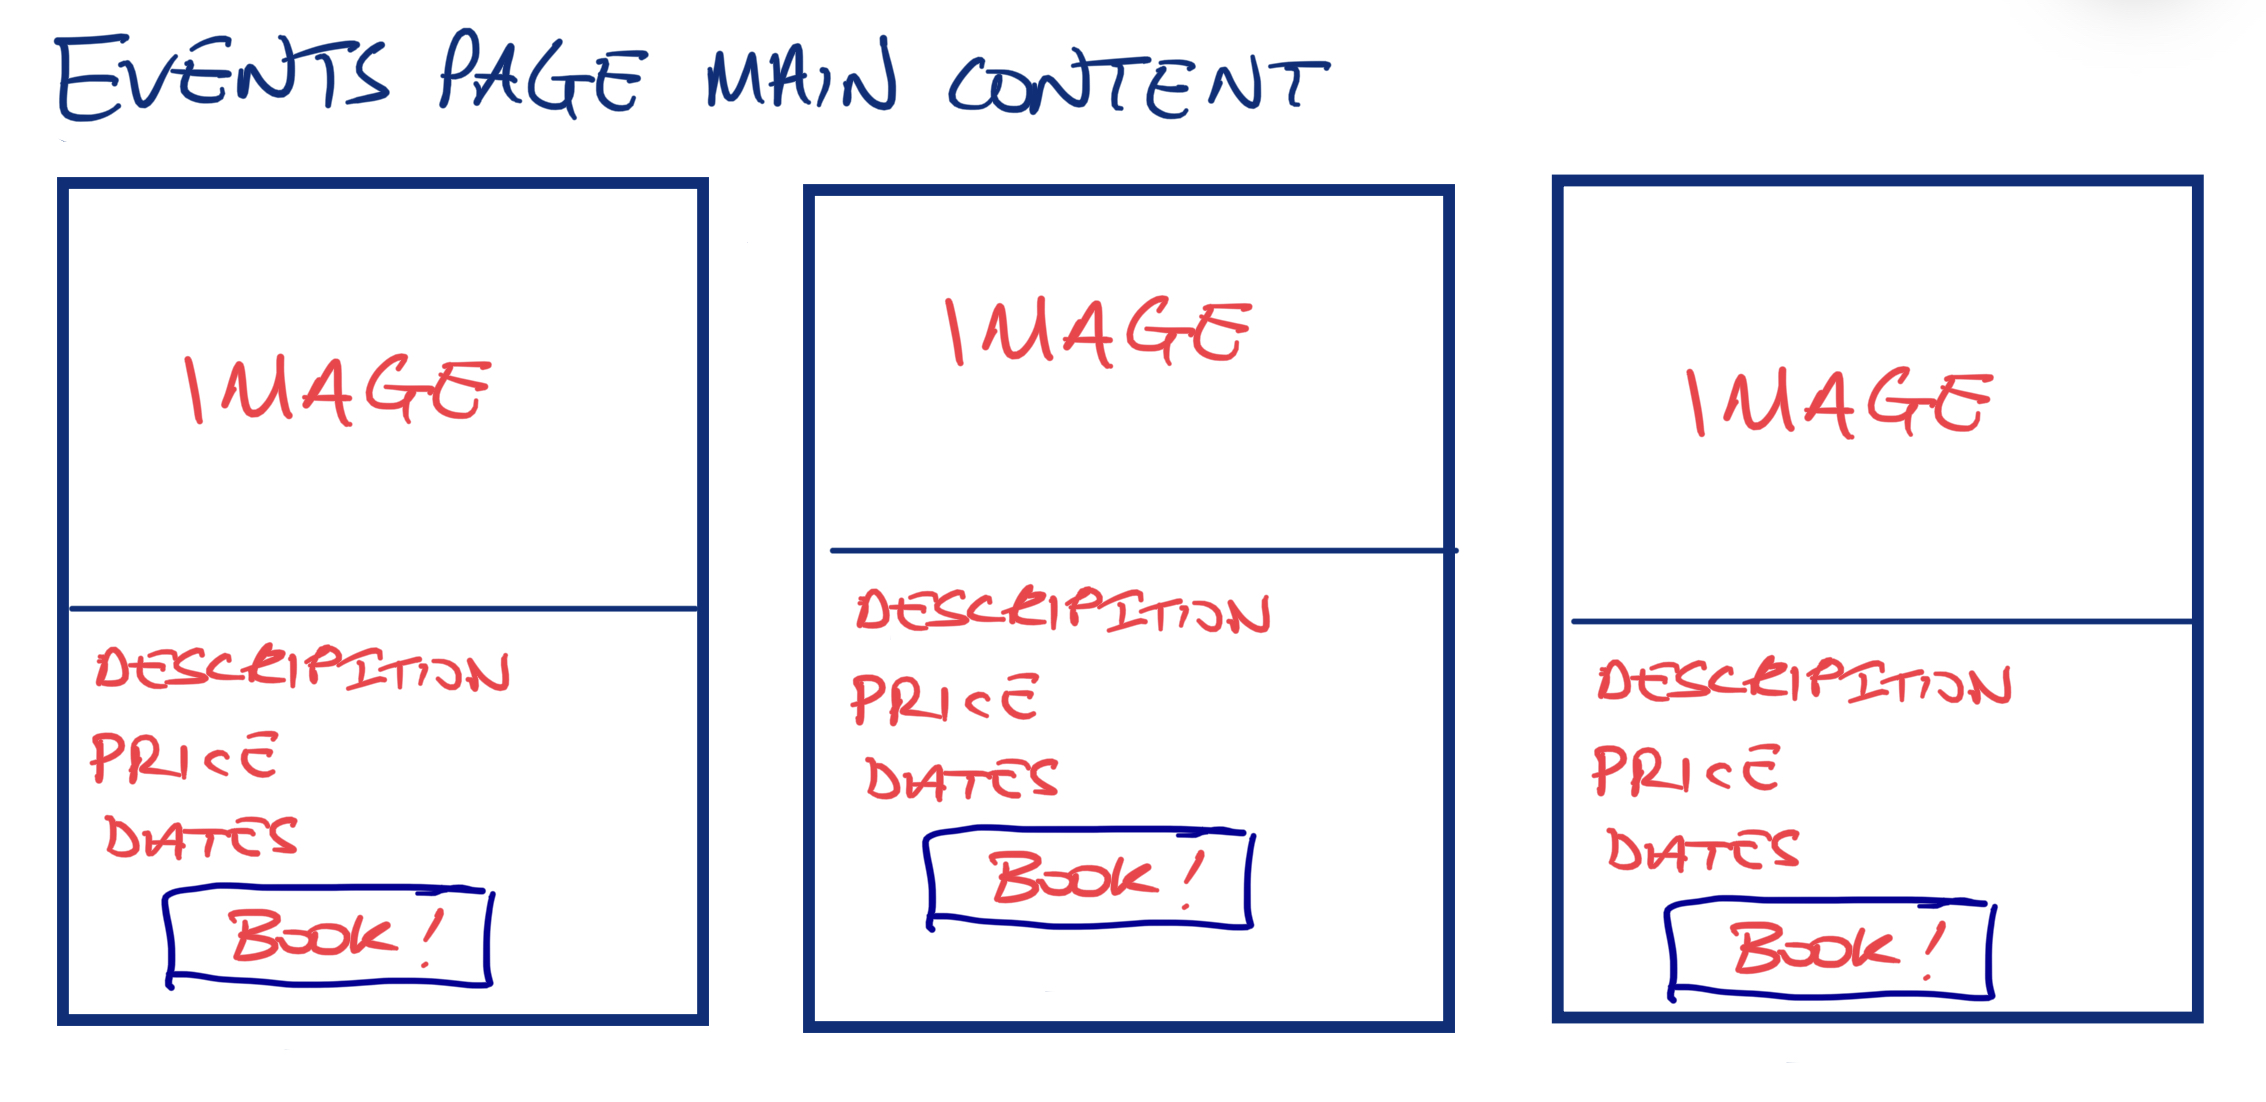 EVENTS PAGE MAIN CONTENT
IMAGE
DESCRIPITION
PRICE
DATES
BOOK!
IMAGE
DESCRIPITION
PRICE
DATES
BOOK!
IMAGE
DESCRIPITION
PRICE
DATES
BOOK!